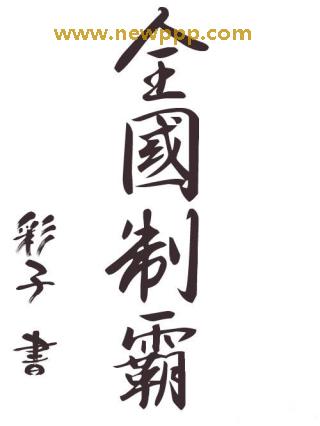 www.newppp.com
全國制霸
彩子 書